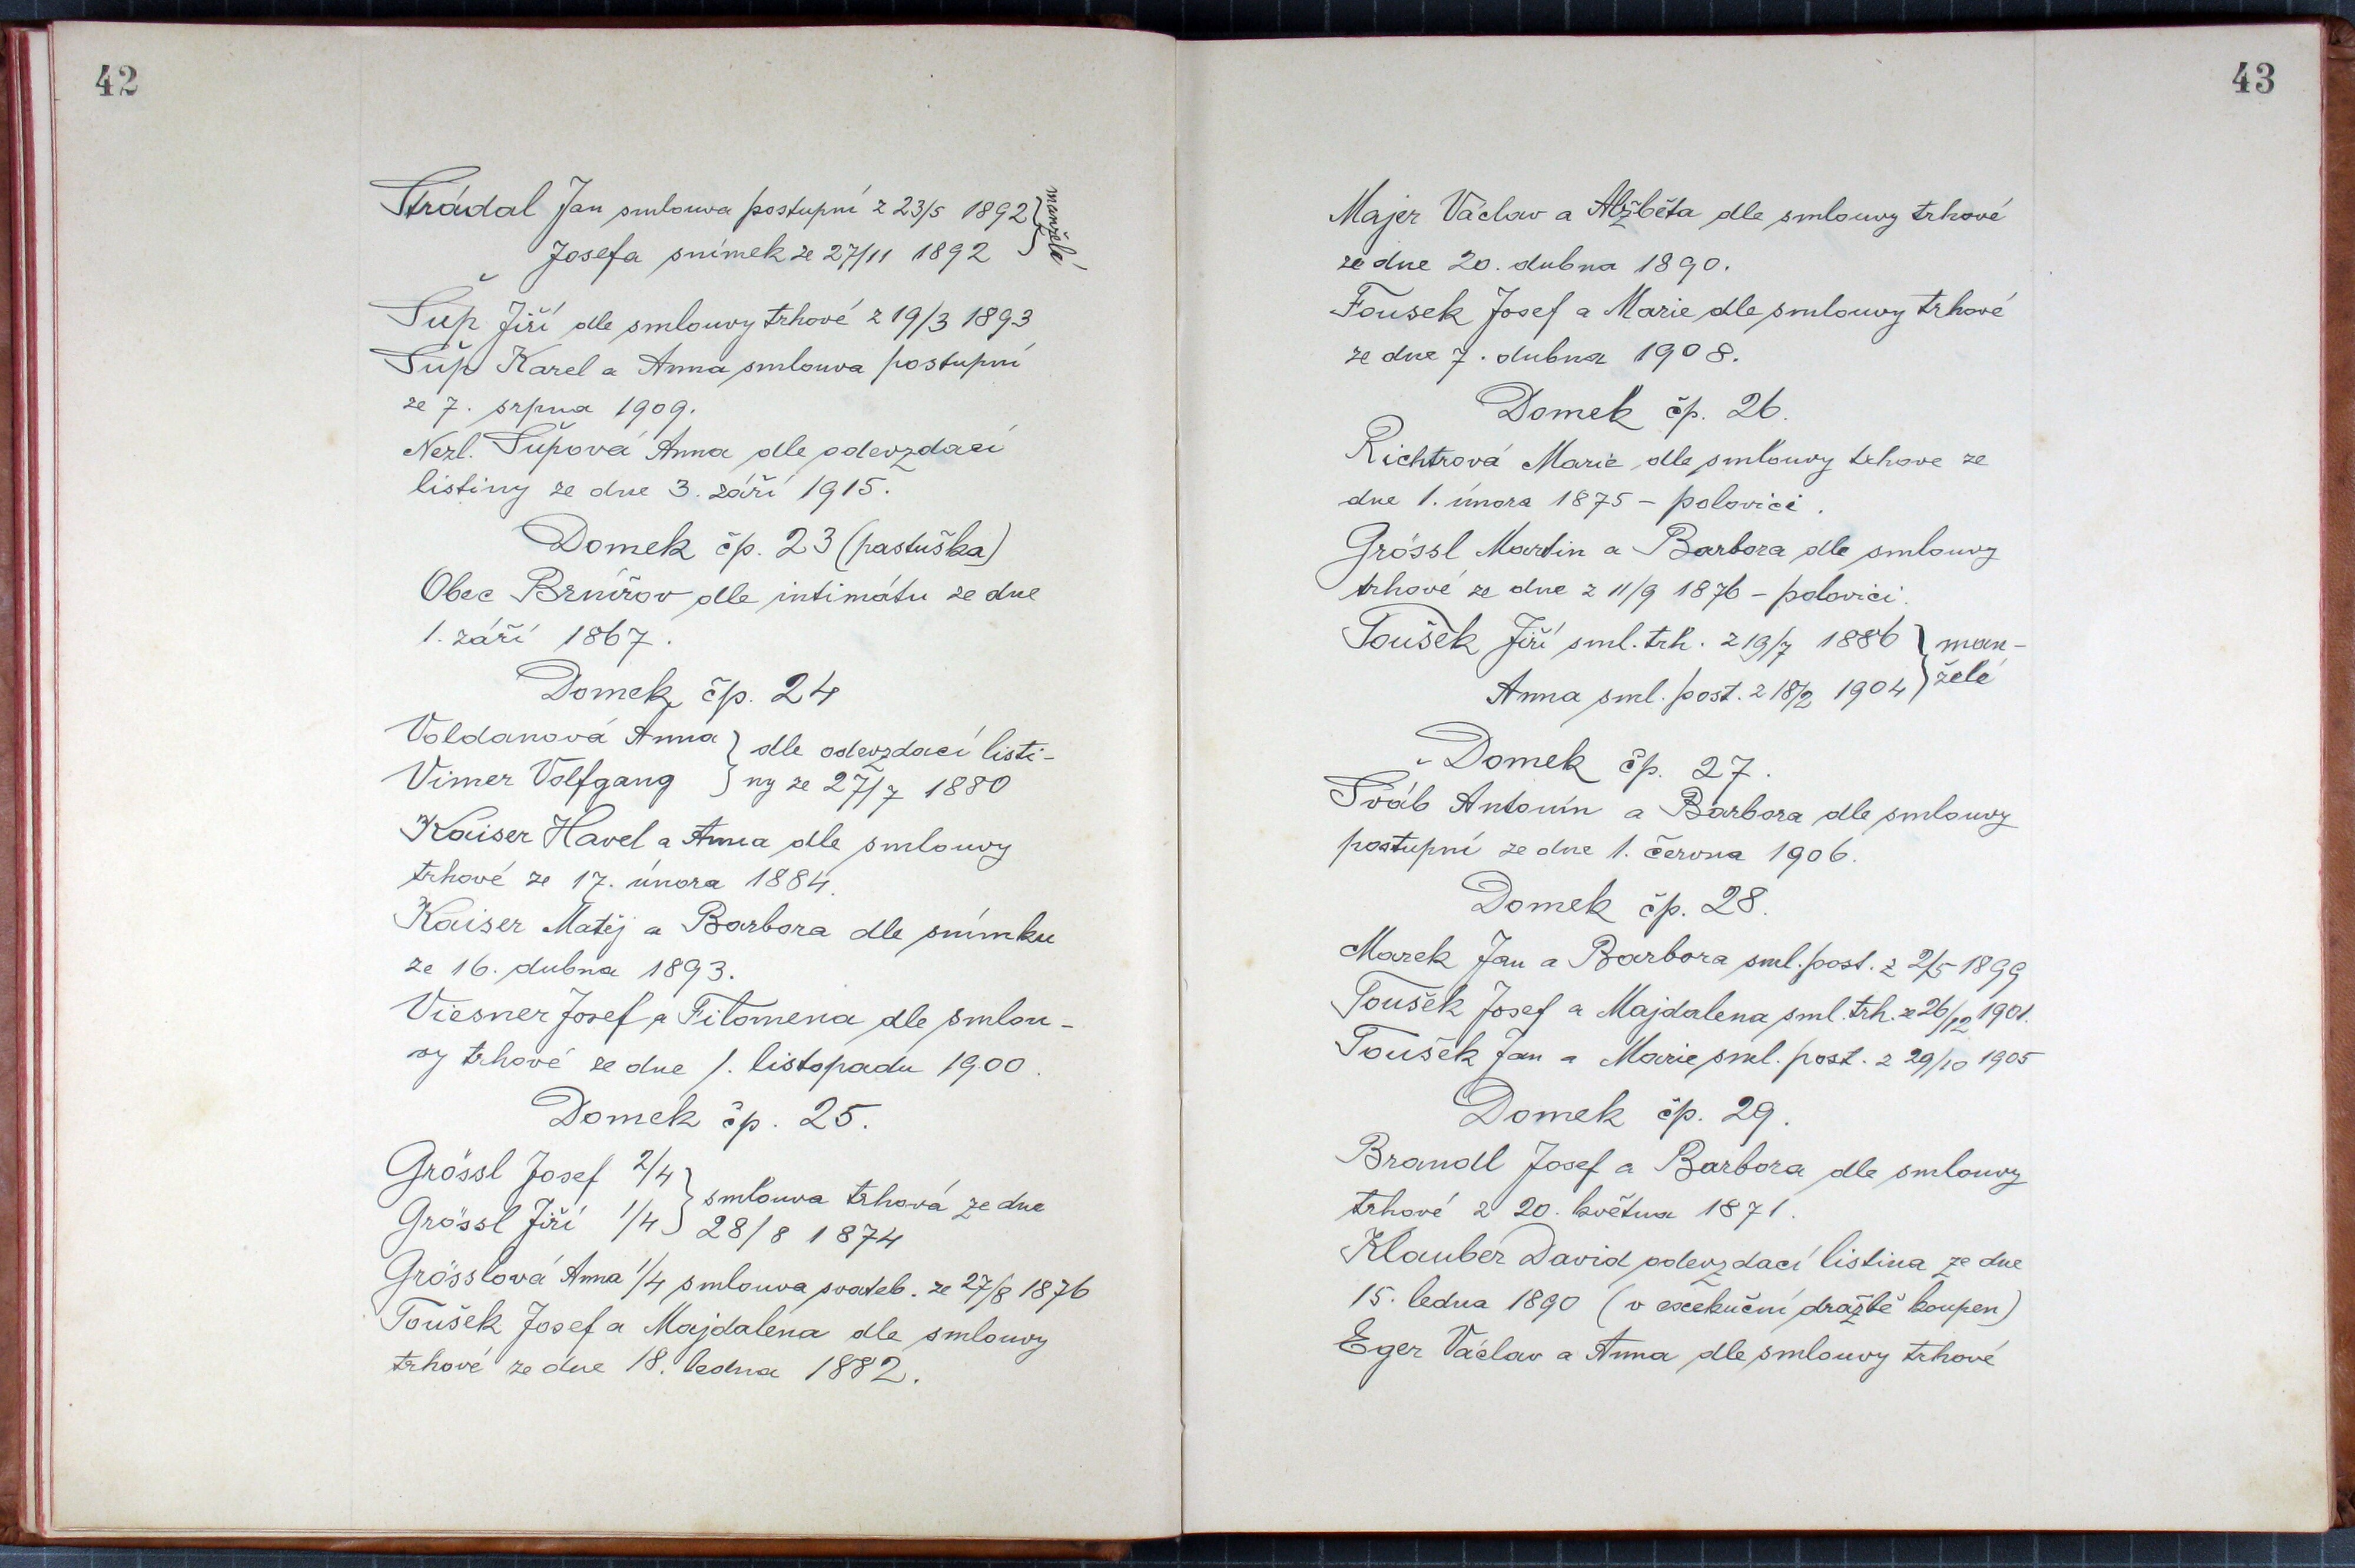 42
Strádal Jan smlouva postupní z 23/5 1892 } manželé
Josefa snímek ze 27/11 1892
Šup Jiří dle smlouvy trhové z 19/3 1893
Šup Karel a Anna smlouva postupní
ze 7. srpna 1909.
Nezl. Šupová Anna dle odevzdací
listiny ze dne 3. září 1915.
Domek čp. 23 (pastuška)
Obec Brnířov dle intimátu ze dne
1. září 1867.
Domek čp. 24
Voldanová Anna } dle odevzdací listi-
Vimer Volfgang } ny ze 27/7 1880
Kaiser Havel a Anna dle smlouvy
trhové ze 17. února 1884.
Kaiser Matěj a Barbora dle snímku
ze 16. dubna 1893.
Viesner Josef a Filomena dle smlou-
vy trhové ze dne 1. listopadu 1900.
Domek čp. 25.
Grössl Josef 2/4 } smlouva trhová ze dne
Grössl Jiří 1/4 } 28/8 1874
Grösslová Anna 1/4 smlouva svateb. ze 27/8 1876
Toušek Josef a Majdalena dle smlouvy
trhové ze dne 18. ledna 1882.
43
Majer Václav a Alžběta dle smlouvy trhové
ze dne 20. dubna 1890.
Tousek Josef a Marie dle smlouvy trhové
ze dne 7. dubna 1908.
Domek čp. 26.
Richtrová Marie dle smlouvy trhove ze
dne 1. února 1875 – polovici.
Grössl Martin a Barbora dle smlouvy
trhové ze dne z 11/9 1876 – polovici.
Toušek Jiří sml. trh. z 19/7 1886 } man-
Anna sml. post. z 18/2 1904 } želé
Domek čp. 27.
Šváb Antonín a Barbora dle smlouvy
postupní ze dne 1. června 1906.
Domek čp. 28.
Marek Jan a Barbora sml. post. z 2/5 1899
Toušek Josef a Majdalena sml. trh. ze 26/12 1901.
Toušek Jan a Marie sml. post. z 29/10 1905
Domek čp. 29.
Brandl Josef a Barbora dle smlouvy
trhové z 20. května 1871.
Klauber David odevzdací listina ze dne
15. ledna 1890 (v exekuční dražbě koupen)
Eger Václav a Anna dle smlouvy trhové